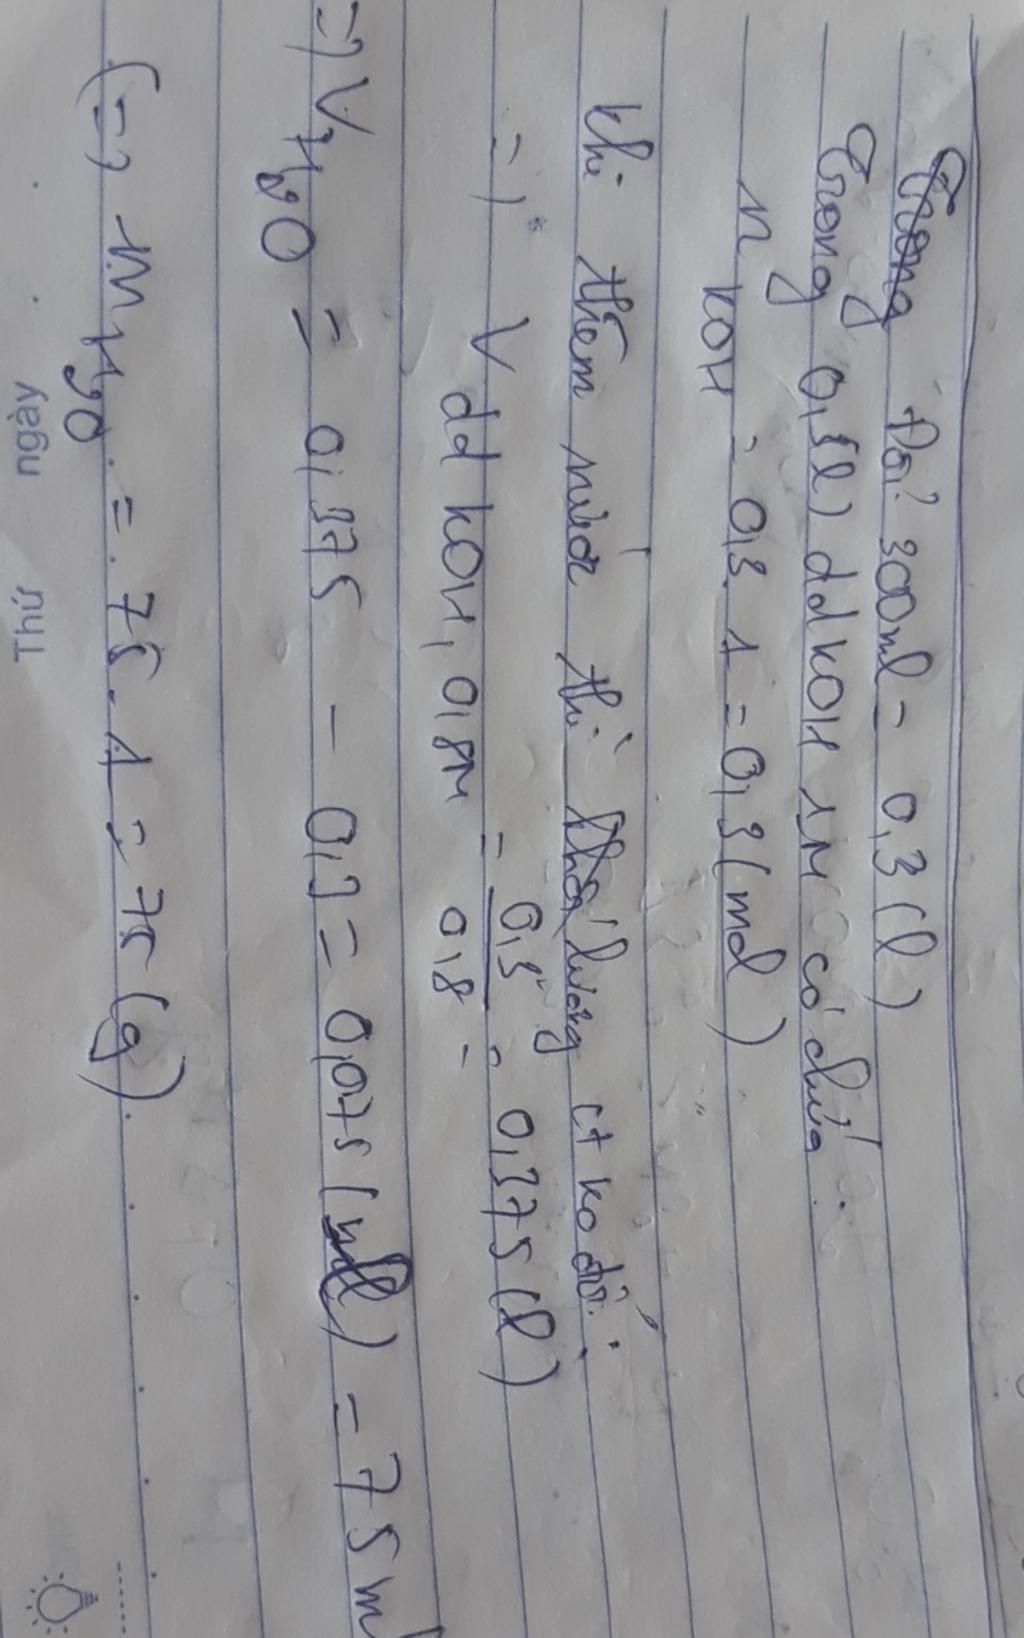 Đổi 300ml = 0,3 (l)
Trong 0,3(l) dd KOH 1M có chứa:
n KOH = 0,3 . 1 = 0,3 (mol)
khi thêm nước thì lượng ct ko đổi:
=) V dd KOH, 0,8M = 0,3 / 0,8 = 0,375 (l)
=) V H2O = 0,375 - 0,3 = 0,075 (l) = 75 ml
(=) m H2O = 75 . 1 = 75 (g).
Thứ ngày